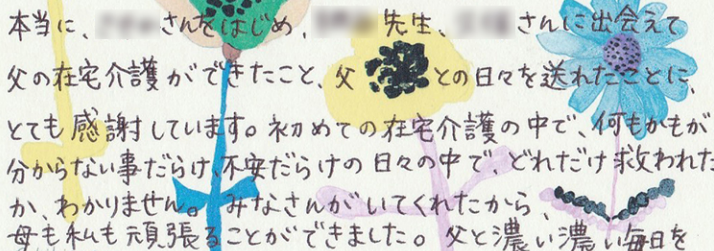 本当に、さんをはじめ、先生、さんに出会えて
父の在宅介護ができたこと、父との日々を送れたことに、
とても感謝しています。初めての在宅介護の中で、何もかもが
分からない事だらけ、不安だらけの日々の中で、どれだけ救われた
か、わかりません。みなさんがいてくれたから、
母も私も頑張ることができました。父と濃い濃い毎日を